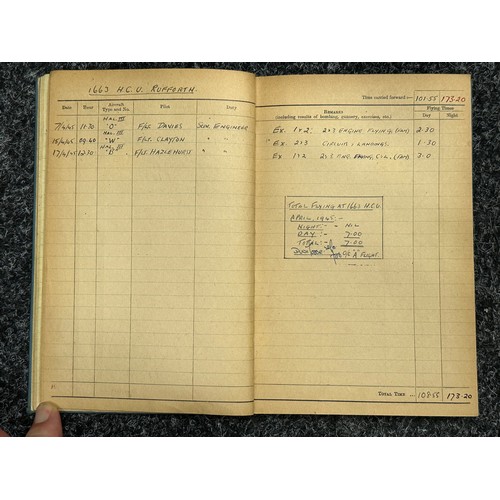 1663 H.C.U. RUFFORTH.
Date Hour Aircraft Type and No. Pilot Duty
HAL. III
7/4/45 11.30 "O" F/Lt. DAVIES SEN. ENGINEER
HAL. III
15/4/45 09.40 "W" F/Lt. CLAYTON " "
HAL. III
17/4/45 12.30 F/Lt. HAZLEHURST " "
Time carried forward :— 101.55 173.20
Remarks (including results of bombing, gunnery, exercises, etc.) Flying Times Day Night
Ex. 1+2. 2+3 ENGINE FLYING. 2.30
" Ex 2+3 CIRCUITS & LANDINGS. 1.30
" Ex 1+2 2+3 ENG. C.&L. 3.0
TOTAL FLYING AT 1663 H.C.U.
APRIL, 1945:-
NIGHT:- - NIL
DAY:- 7.00
TOTAL:- 7.00
OC 'A' FLIGHT.
Total Time ... 108.55 173.20